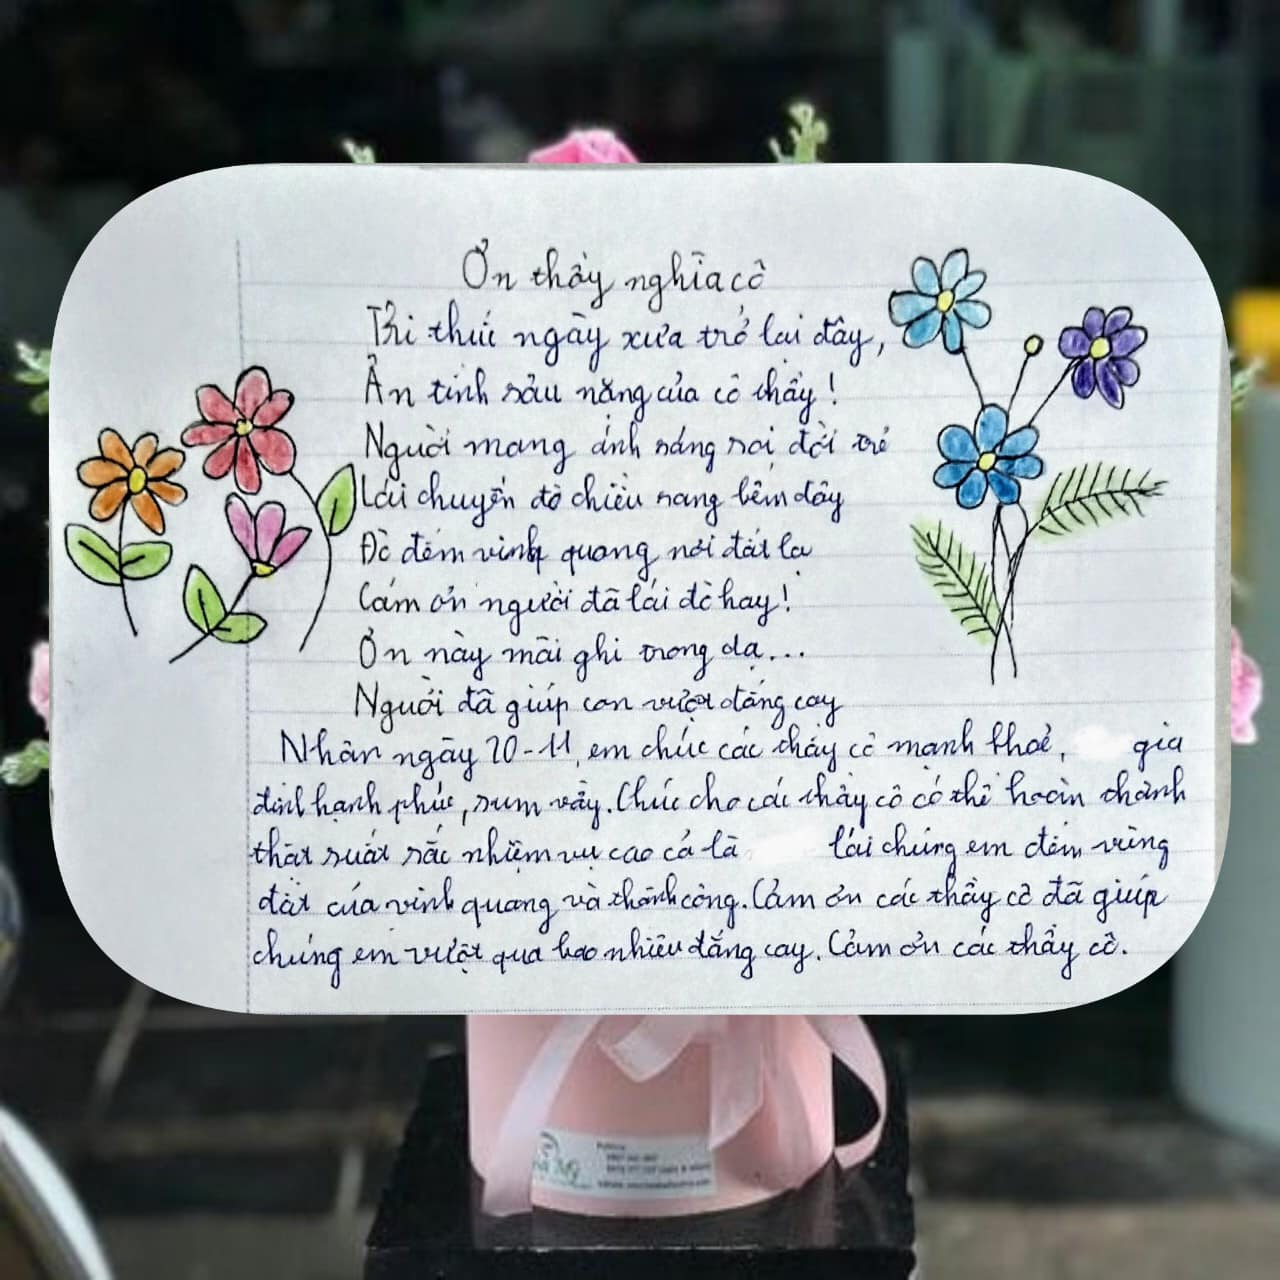 Ơn thầy nghĩa cô
Tri thức ngày xưa trở lại đây,
Ân tình sâu nặng của cô thầy!
Người mang ánh sáng soi đời trẻ
Lái chuyến đò chiều sang bến đây
Đò đêm vinh quang nơi đất lạ
Cám ơn người đã lái đò hay!
Ơn này mãi ghi trong dạ...
Người đã giúp con vượt đắng cay
Nhân ngày 20-11, em chúc các thầy cô mạnh khoẻ, gia
đình hạnh phúc, sum vầy. Chúc cho các thầy cô có thể hoàn thành
thật suất sắc nhiệm vụ cao cả là lái chúng em đến vùng
đất của vinh quang và thành công. Cảm ơn các thầy cô đã giúp
chúng em vượt qua bao nhiêu đắng cay. Cảm ơn các thầy cô.